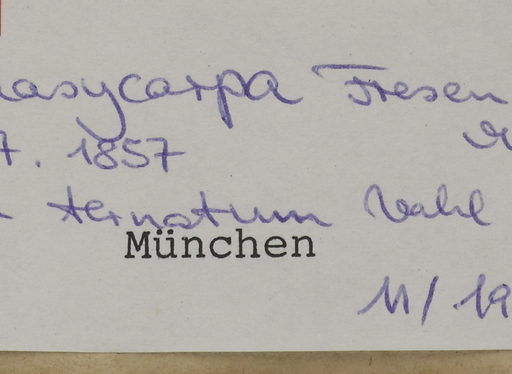 dasycarpa Fresen
7. 1857
ternatum Vahl
München
11/19